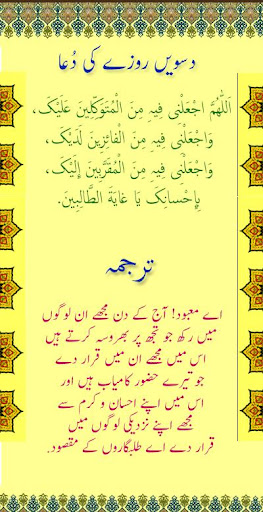 دسویں روزے کی دُعا
اَللّٰهُمَّ اجْعَلْنِی فِیهِ مِنَ الْمُتَوَکِّلِینَ عَلَیْکَ،
وَاجْعَلْنِی فِیهِ مِنَ الْفَائِزِینَ لَدَیْکَ،
وَاجْعَلْنِی فِیهِ مِنَ الْمُقَرَّبِینَ إلَیْکَ،
بِإحْسانِکَ یَا غایَةَ الطَّالِبِینَ.
ترجمہ
اے معبود! آج کے دن مجھے ان لوگوں
میں رکھ جو تجھ پر بھروسہ کرتے ہیں
اس میں مجھے ان میں قرار دے
جو تیرے حضور کامیاب ہیں اور
اس میں اپنے احسان و کرم سے
مجھے اپنے نزدیکی لوگوں میں
قرار دے اے طلبگاروں کے مقصود.